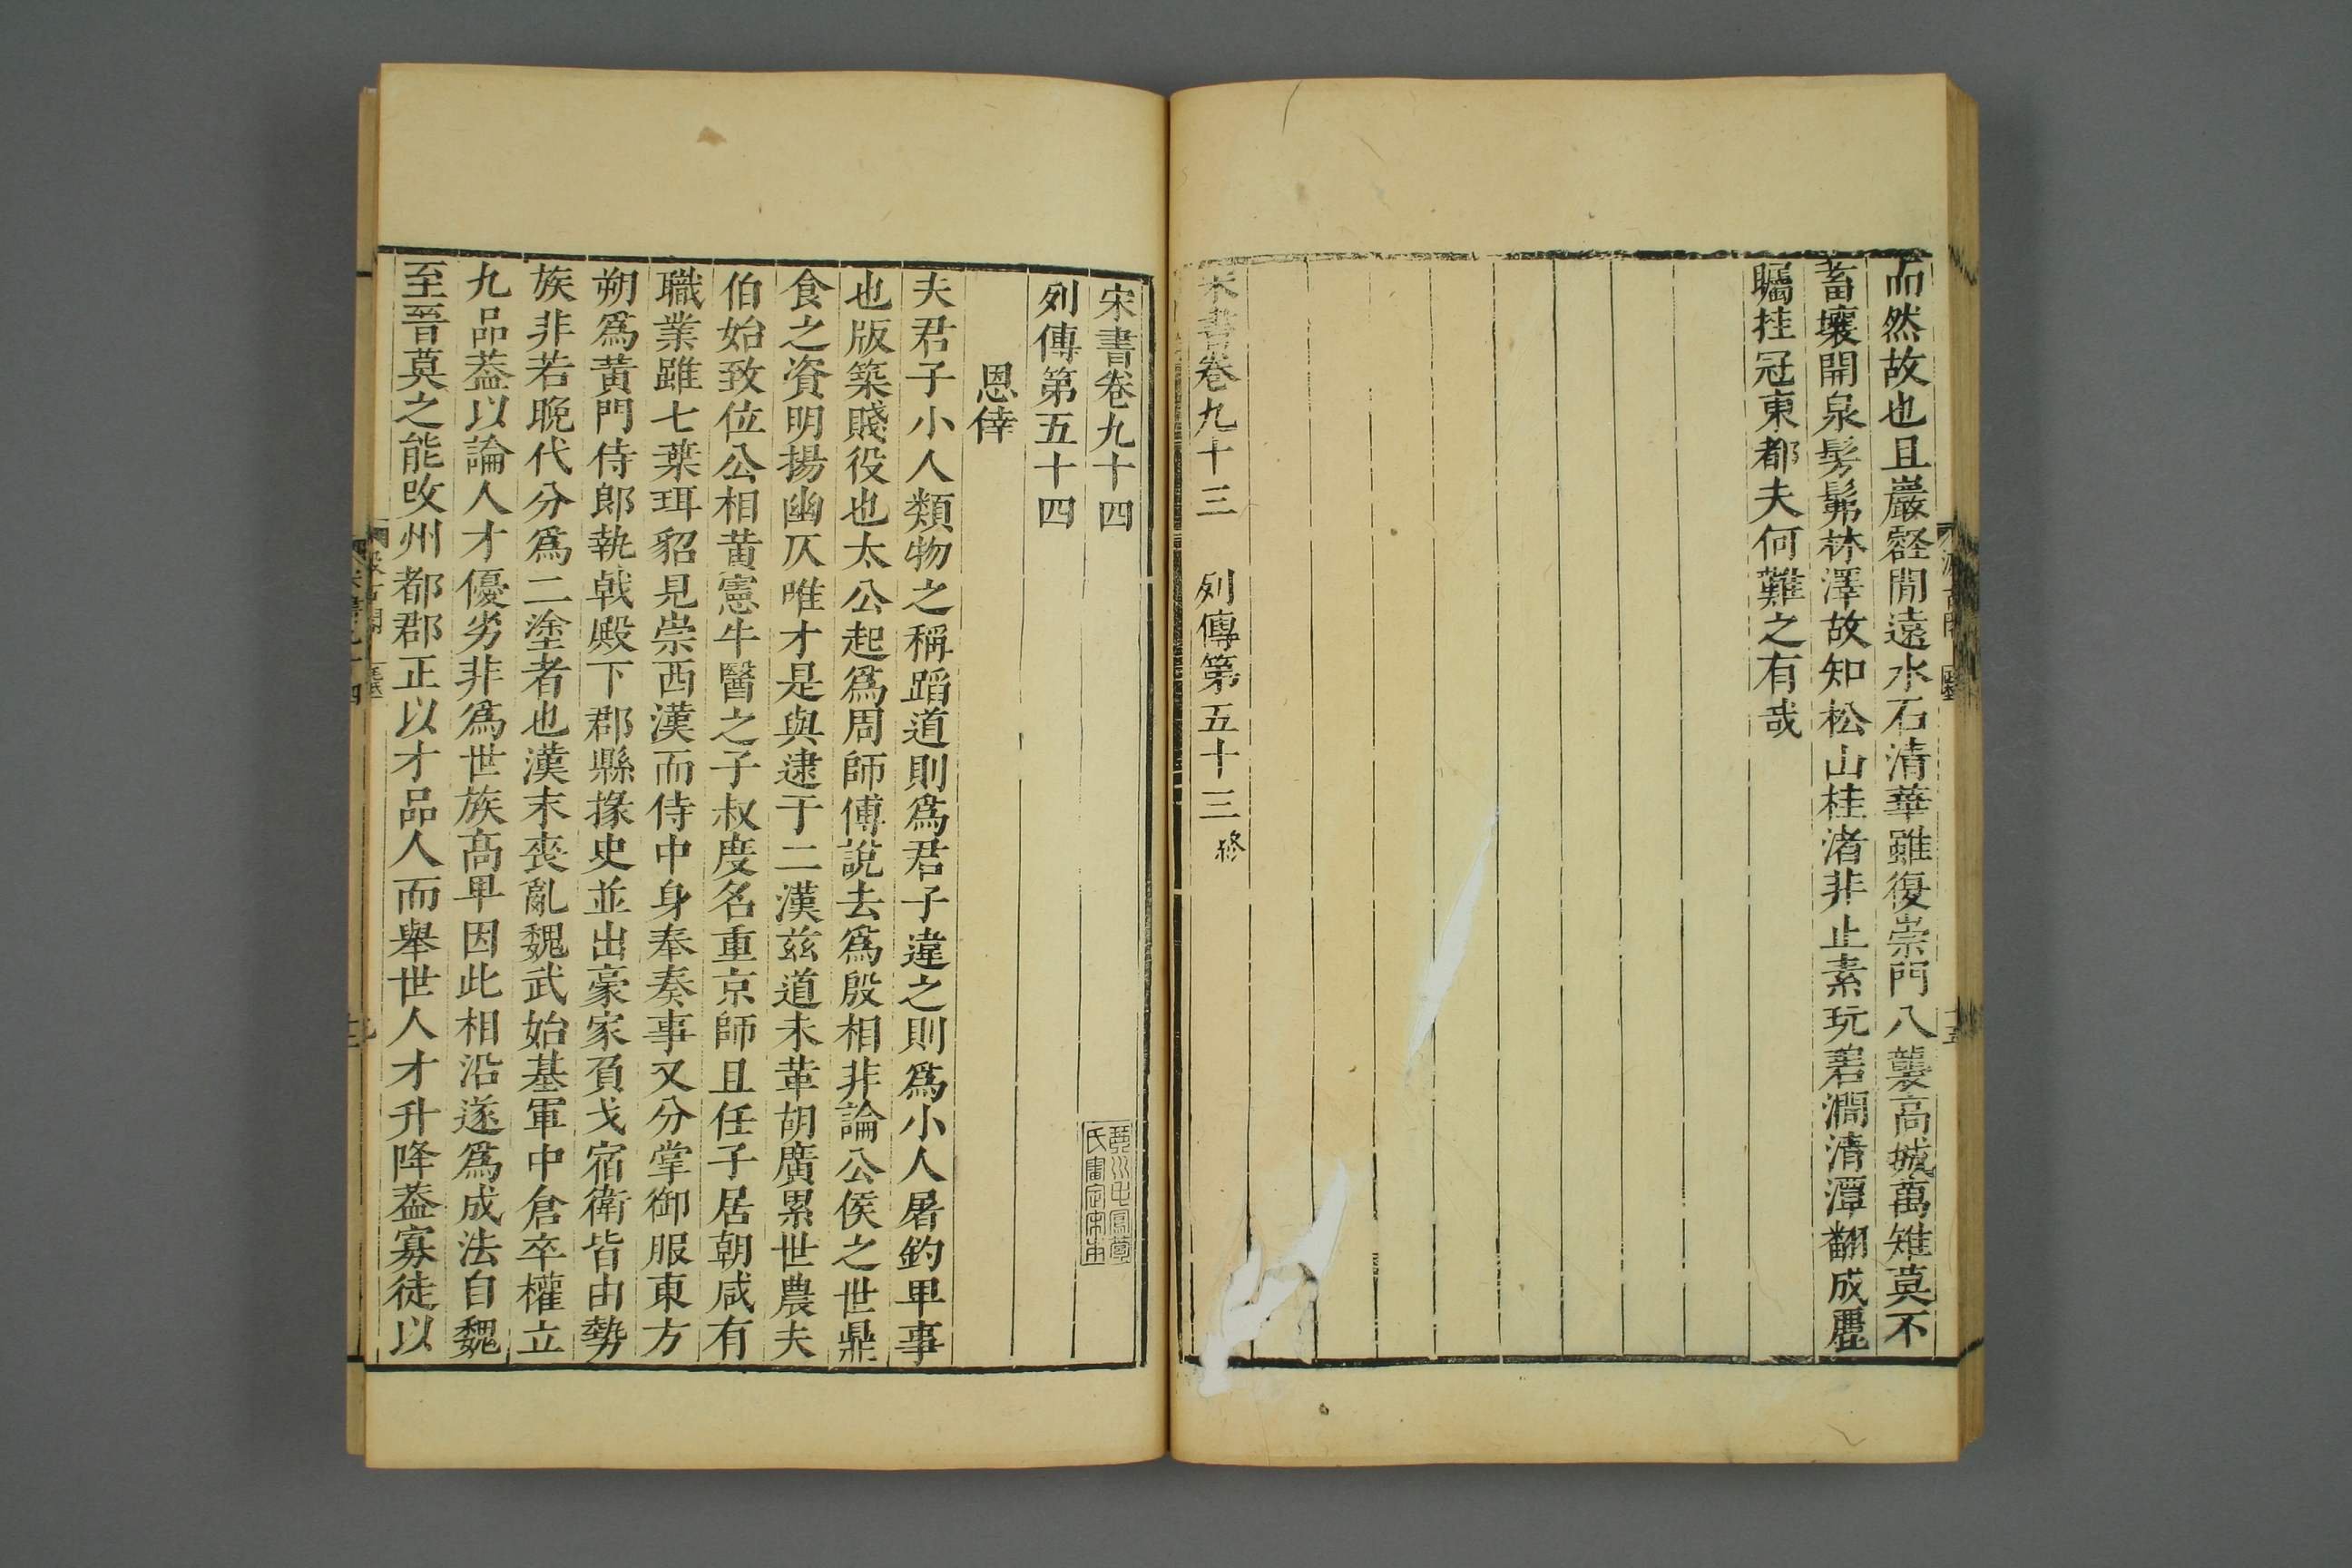 而然故也且巖壑閒遠水石清華雖復崇門八襲高城萬雉莫不
蓄壤開泉髣髴林澤故知松山桂渚非止素玩碧澗清潭翻成麗
矚挂冠東都夫何難之有哉
宋書卷九十三 列傳第五十三 終
宋書卷九十四
列傳第五十四
恩倖
夫君子小人類物之稱蹈道則爲君子違之則爲小人屠釣卑事
也版築賤役也太公起爲周師傅說去爲殷相非論公侯之世鼎
食之資明揚幽仄唯才是與逮于二漢兹道未革胡廣累世農夫
伯始致位公相黃憲牛醫之子叔度名重京師且任子居朝咸有
職業雖七葉珥貂見崇西漢而侍中身奉奏事又分掌御服東方
朔爲黃門侍郎執戟殿下郡縣掾史並出豪家負戈宿衛皆由勢
族非若晚代分爲二塗者也漢末喪亂魏武始基軍中倉卒權立
九品葢以論人才優劣非爲世族高卑因此相沿遂爲成法自魏
至晉莫之能改州都郡正以才品人而舉世人才升降葢寡徒以